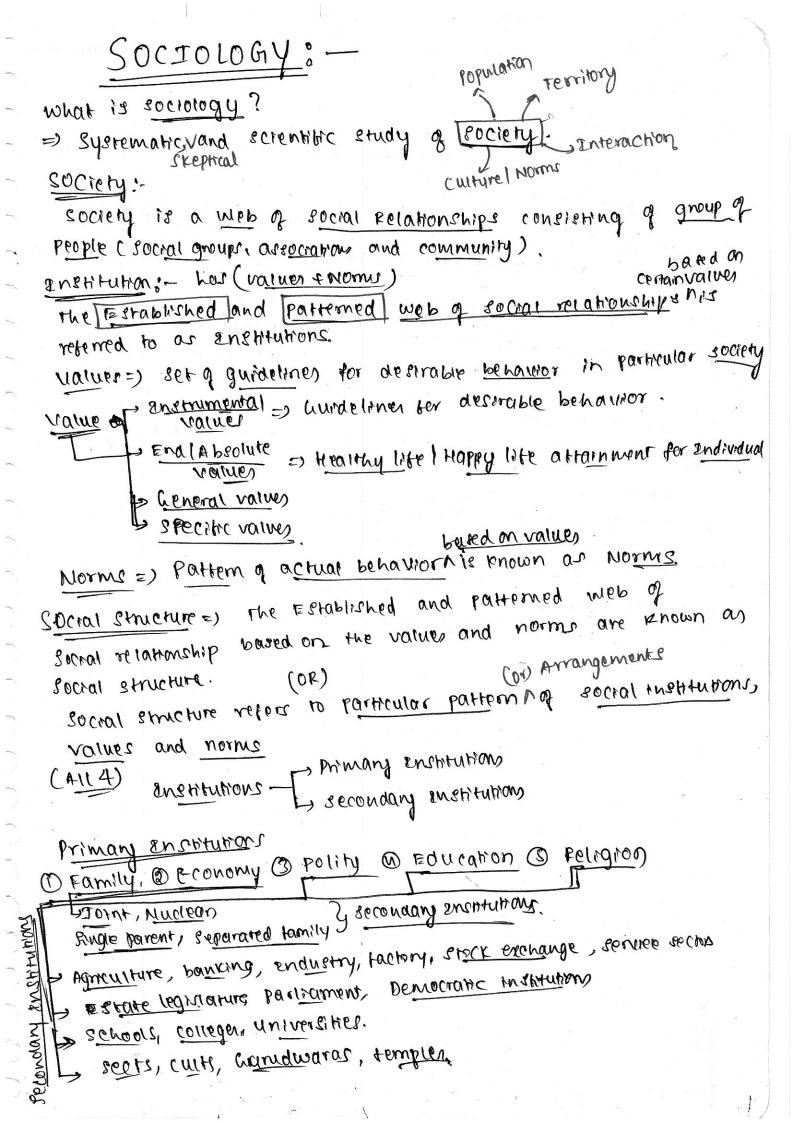 SOCIOLOGY :—
Population
Territory
What is sociology ?
=> Systematic, and scientific study of society.
Skeptical
Interaction
Culture/ Norms
SOCiety:-
Society is a web of social Relationships consisting of group of
People ( social groups, associations and community) .
Institution:- has (values & Norms)
based on
certain values
The Established and patterned web of social relationships is
referred to as institutions.
Values => set of guidelines for desirable behavior in particular society
Value
Instrumental => Guidelines for desirable behavior .
values
End/Absolute => Healthy life / Happy life attainment for individual
values
General values
Specific values .
based on values
Norms => Pattern of actual behavior is known as Norms.
Social Structure => The Established and patterned web of
social relationship based on the values and norms are known as
social structure.
(OR)
(or) Arrangements
Social structure refers to particular pattern of social institutions,
values and norms
(All 4)
Institutions
Primary institutions
Secondary institutions
Primary institutions
① Family, ② Economy ③ Polity ④ Education ⑤ Religion
Joint, Nuclear
Single parent, Separated family } secondary institutions.
Agriculture, banking, industry, factory, stock exchange , service sectors
State legislature Parliament, Democratic institutions
Schools, colleges, universities.
Sects, cults, Gurudwaras , temples.
Secondary institutions
1